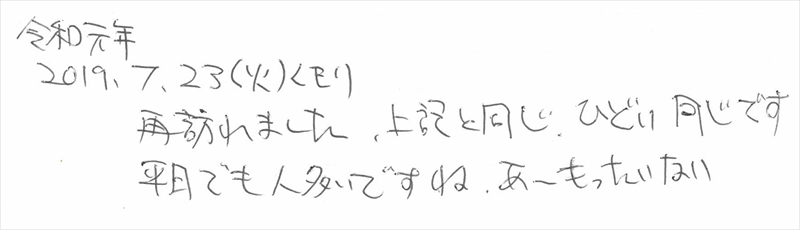 令和元年
2019、7、23(火)くもり
再訪れました、上記と同じ、ひどい同じです
平日でも人多いですね、あ〜もったいない